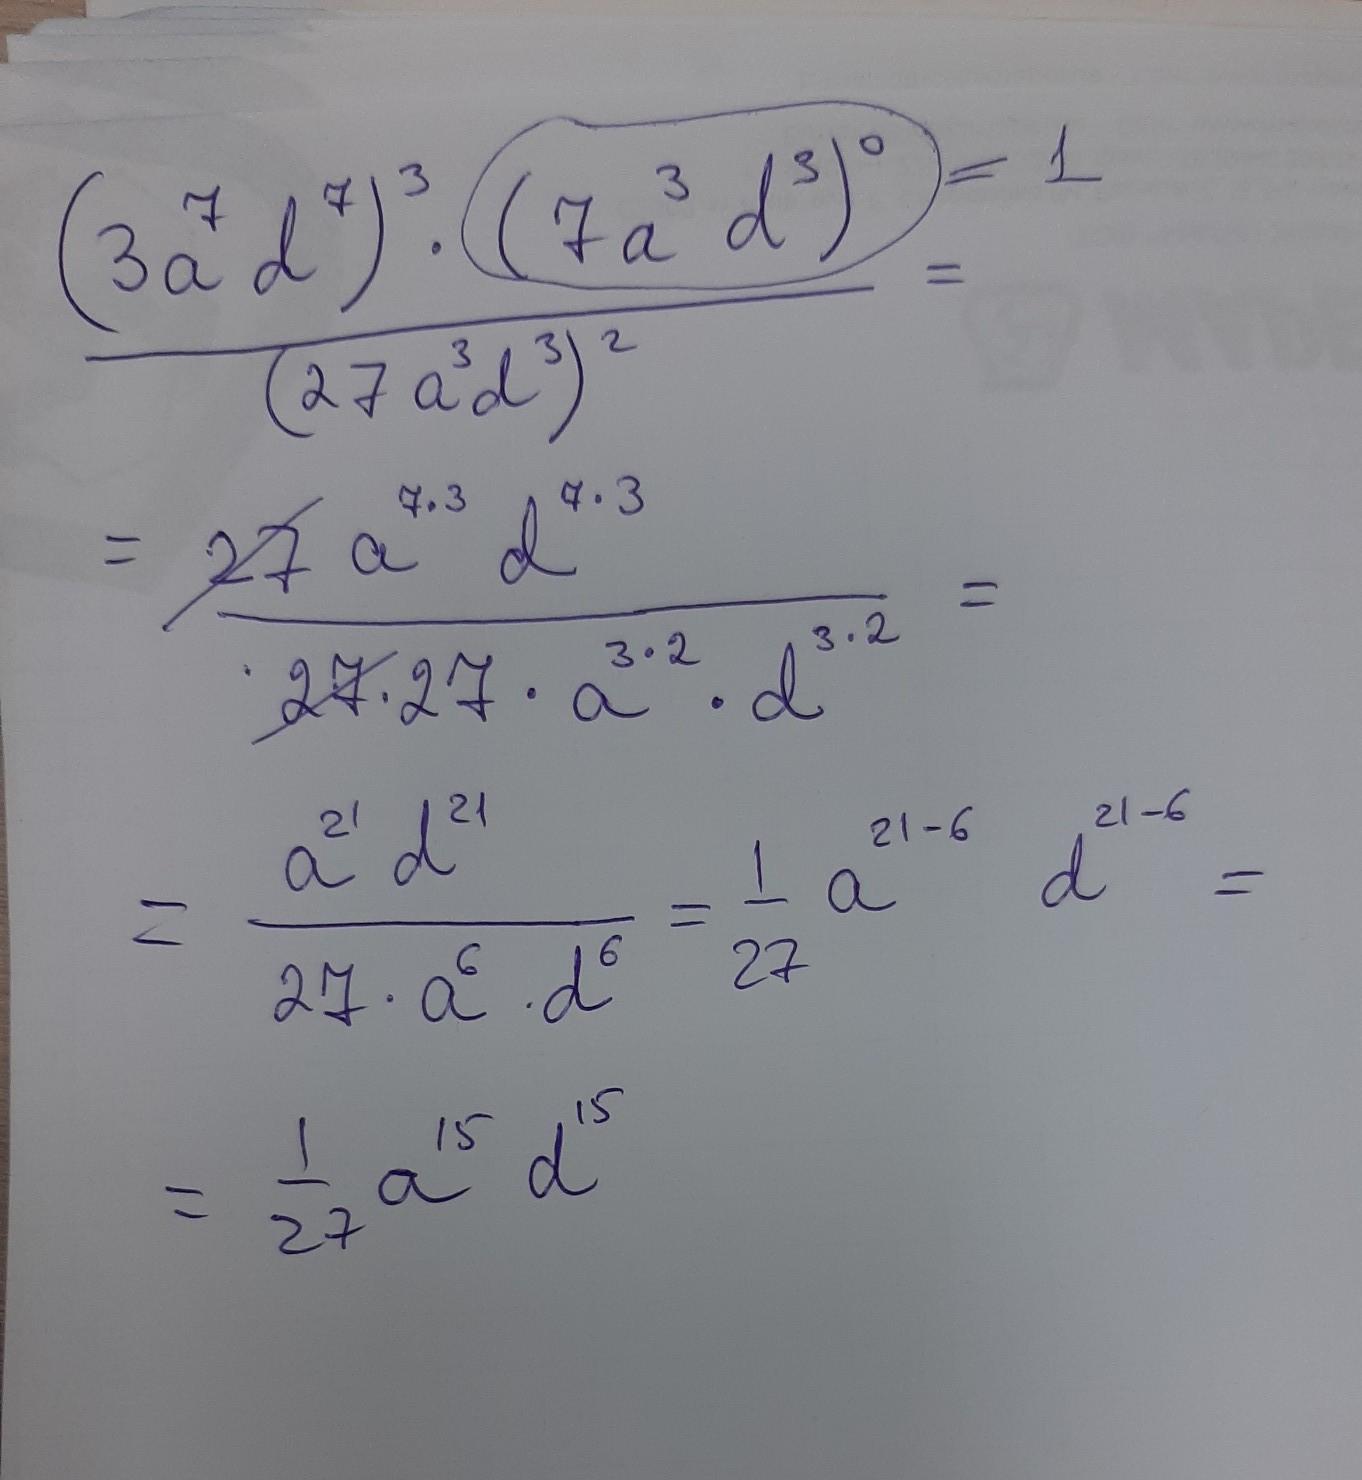 (3a⁷d⁷)³ · (7a³d³)⁰ = 1
=
(27a³d³)²
= 27 a⁷·³ d⁷·³
=
27·27 · a³·² · d³·²
= a²¹ d²¹ / 27·a⁶·d⁶ = 1/27 a²¹⁻⁶ d²¹⁻⁶ =
= 1/27 a¹⁵ d¹⁵